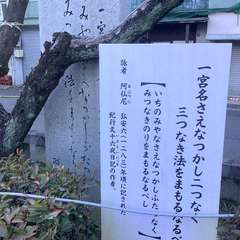 一宮名さえなつかし二つなく
三つなき法をまもるなる
【いちのみやなさえなつかしふたつなく
みつなきのりをまもるなるべし】
詠者 阿仏尼 弘安六(一二八三)年頃に記された
紀行文十六夜日記の作者。